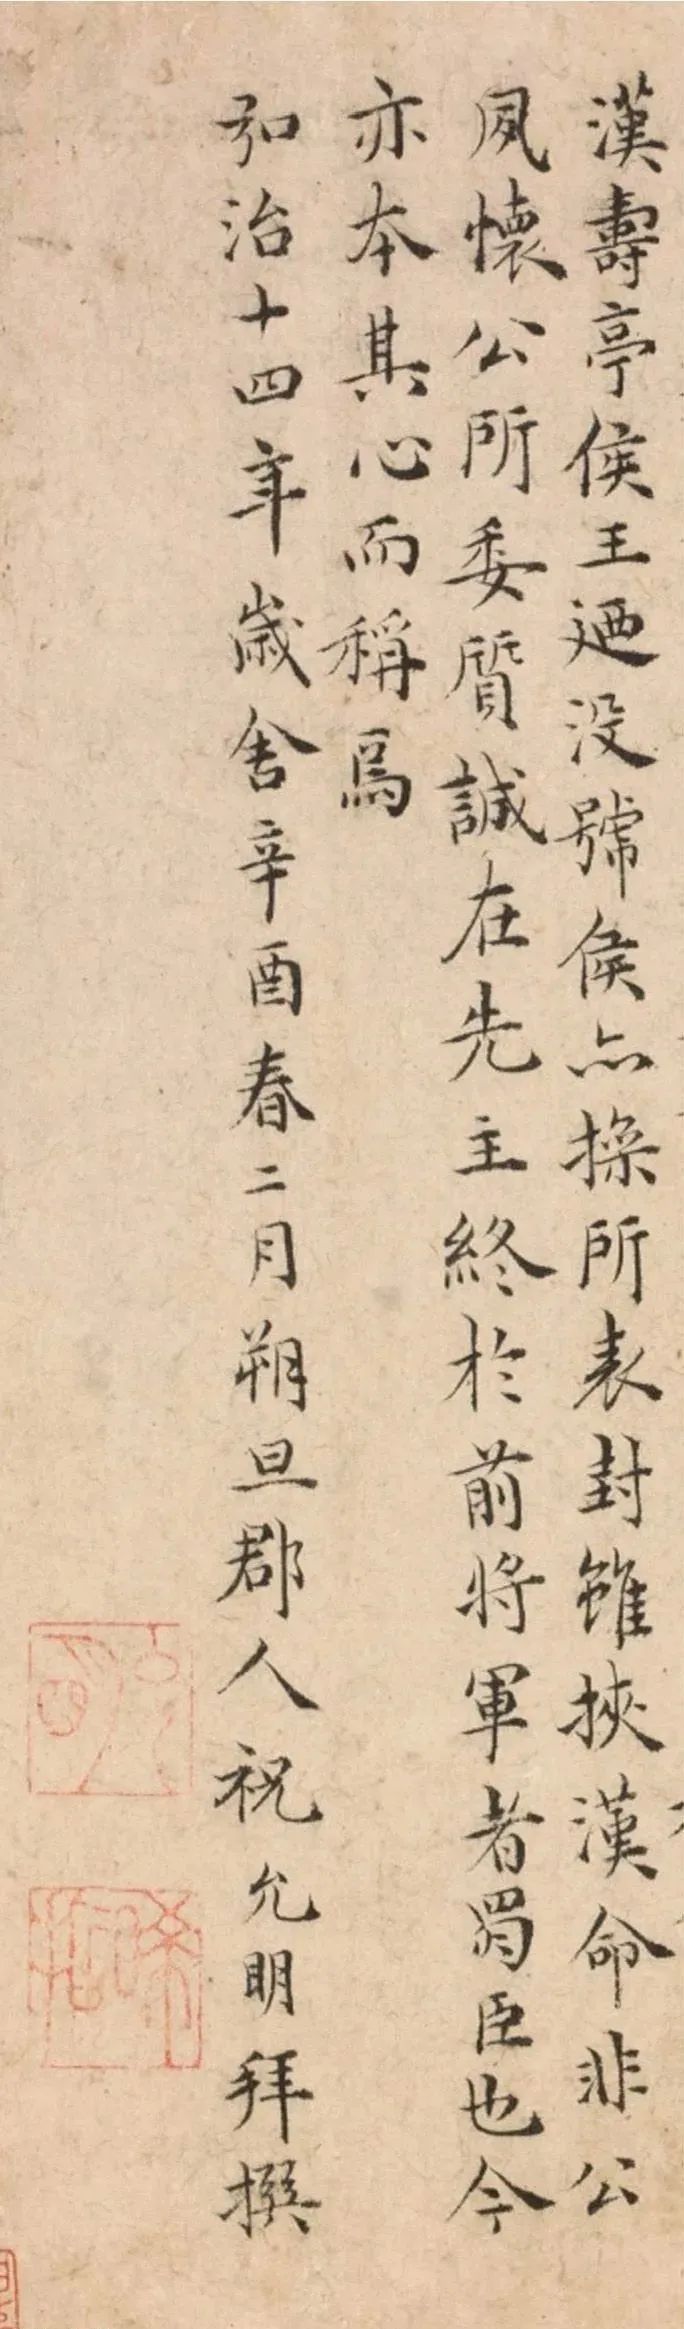 漢壽亭侯王廼没號侯亦操所表封雖挾漢命非公
夙懷公所委質誠在先主終於前將軍者蜀臣也今
亦本其心而稱焉
弘治十四年歲舍辛酉春二月朔旦郡人祝允明拜撰